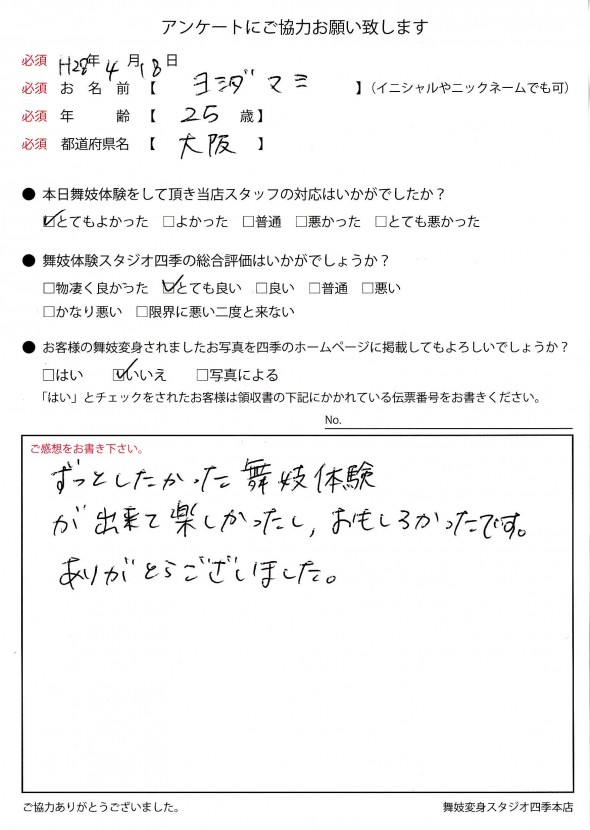 アンケートにご協力お願い致します
必須 H28年 4 月 18 日
必須 お名前 【 ヨシダ マミ 】（イニシャルやニックネームでも可）
必須 年齢 【 25 歳】
必須 都道府県名 【 大阪 】
● 本日舞妓体験をして頂き当店スタッフの対応はいかがでしたか？
☑とてもよかった □よかった □普通 □悪かった □とても悪かった
● 舞妓体験スタジオ四季の総合評価はいかがでしょうか？
□物凄く良かった ☑とても良い □良い □普通 □悪い
□かなり悪い □限界に悪い二度と来ない
● お客様の舞妓変身されましたお写真を四季のホームページに掲載してもよろしいでしょうか？
□はい ☑いいえ □写真による
「はい」とチェックをされたお客様は領収書の下記にかかれている伝票番号をお書きください。
No.
ご感想をお書き下さい。
ずっとしたかった舞妓体験
が出来て楽しかったし, おもしろかったです。
ありがとうございました。
ご協力ありがとうございました。
舞妓変身スタジオ四季本店